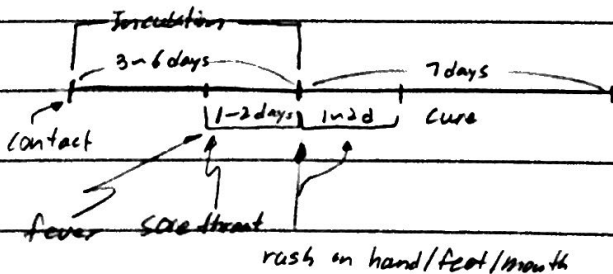 Incubation
3~6 days 7 days
1-2 days 1~2d cure
contact
fever sore throat
rash on hand/feet/mouth